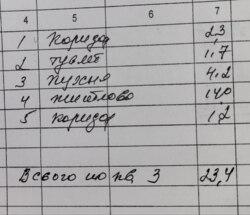 4 5 6 7
1 Коридор 2,3
2 туалет 1,7
3 Кухня 4,2
4 житлова 14,0
5 коридор 1,2
Всього по кв. 3 23,4